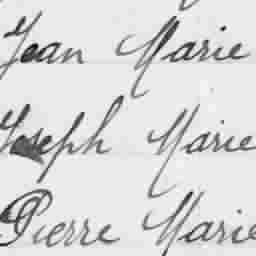 Jean Marie
Joseph Marie
Pierre Marie